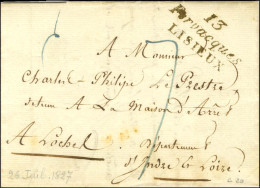 13
Fervacques
LISIEUX
A Monsieur
Charles = Philipe Le Prestre
detenu A La Maison d'Arrêt
A Loches Département
d'Indre & Loire
26 Juil. 1827